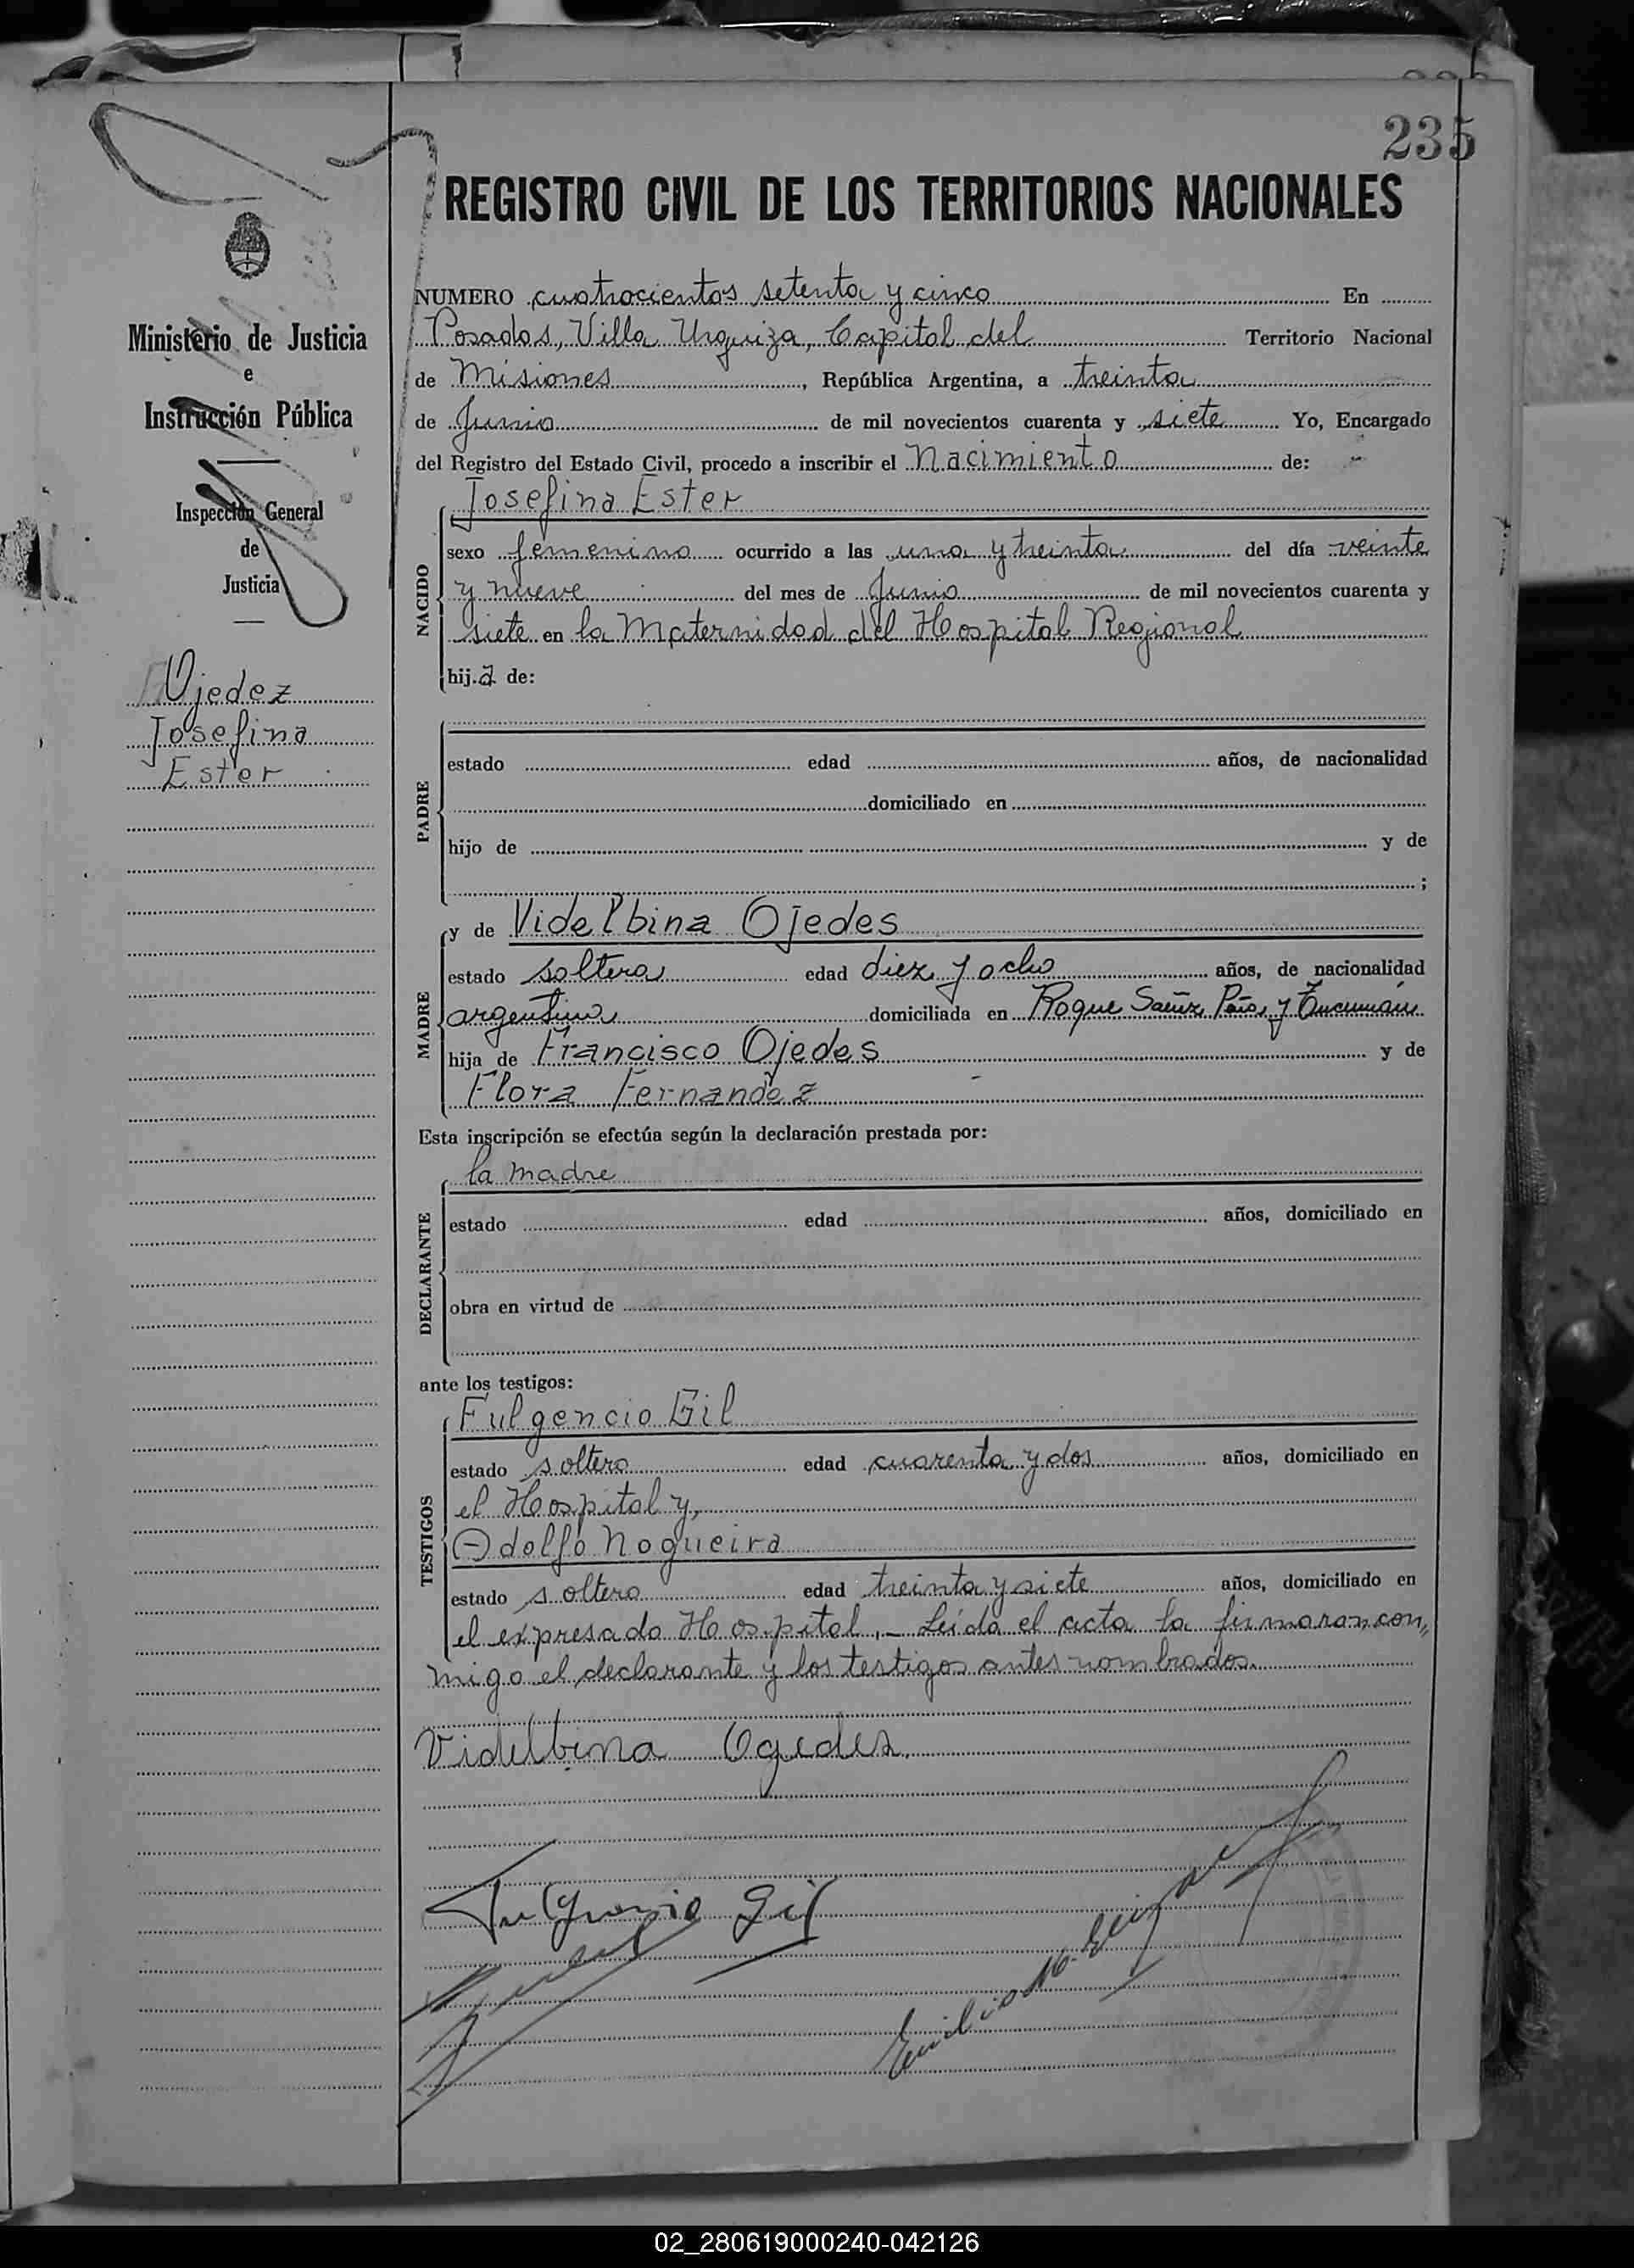 235
REGISTRO CIVIL DE LOS TERRITORIOS NACIONALES
NUMERO cuatrocientos setenta y cinco En
Posadas, Villa Urquiza, Capital del Territorio Nacional
de Misiones, República Argentina, a treinta
de Junio de mil novecientos cuarenta y siete Yo, Encargado
del Registro del Estado Civil, procedo a inscribir el Nacimiento de:
Ministerio de Justicia
e
Instrucción Pública
Inspección General
de
Justicia
Ojedez
Josefina
Ester
NACIDO
Josefina Ester
sexo femenino ocurrido a las una y treinta del día veinte
y nueve del mes de Junio de mil novecientos cuarenta y
siete en la Maternidad del Hospital Regional
hij.a de:
PADRE
estado edad años, de nacionalidad
domiciliado en
hijo de y de
;
MADRE
y de Videlbina Ojedes
estado soltera edad diez y ocho años, de nacionalidad
argentina domiciliada en Roque Saenz Peña y Tucumán
hija de Francisco Ojedes y de
Flora Fernandez
Esta inscripción se efectúa según la declaración prestada por:
la madre
DECLARANTE
estado edad años, domiciliado en
obra en virtud de
ante los testigos:
TESTIGOS
Fulgencio Gil
estado soltero edad cuarenta y dos años, domiciliado en
el Hospital y,
Adolfo Nogueira
estado soltero edad treinta y siete años, domiciliado en
el expresado Hospital.- Leída el acta la firmaron con„
migo el declarante y los testigos antes nombrados.
Videlbina Ogedez
Fulgencio Gil
02_280619000240-042126